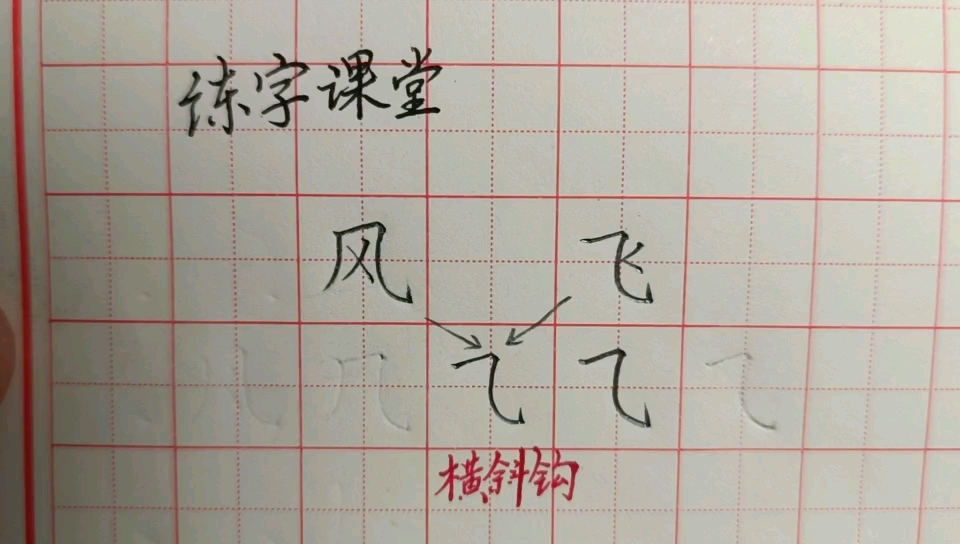 练字课堂
风 飞
⺄ ⺄
横斜钩